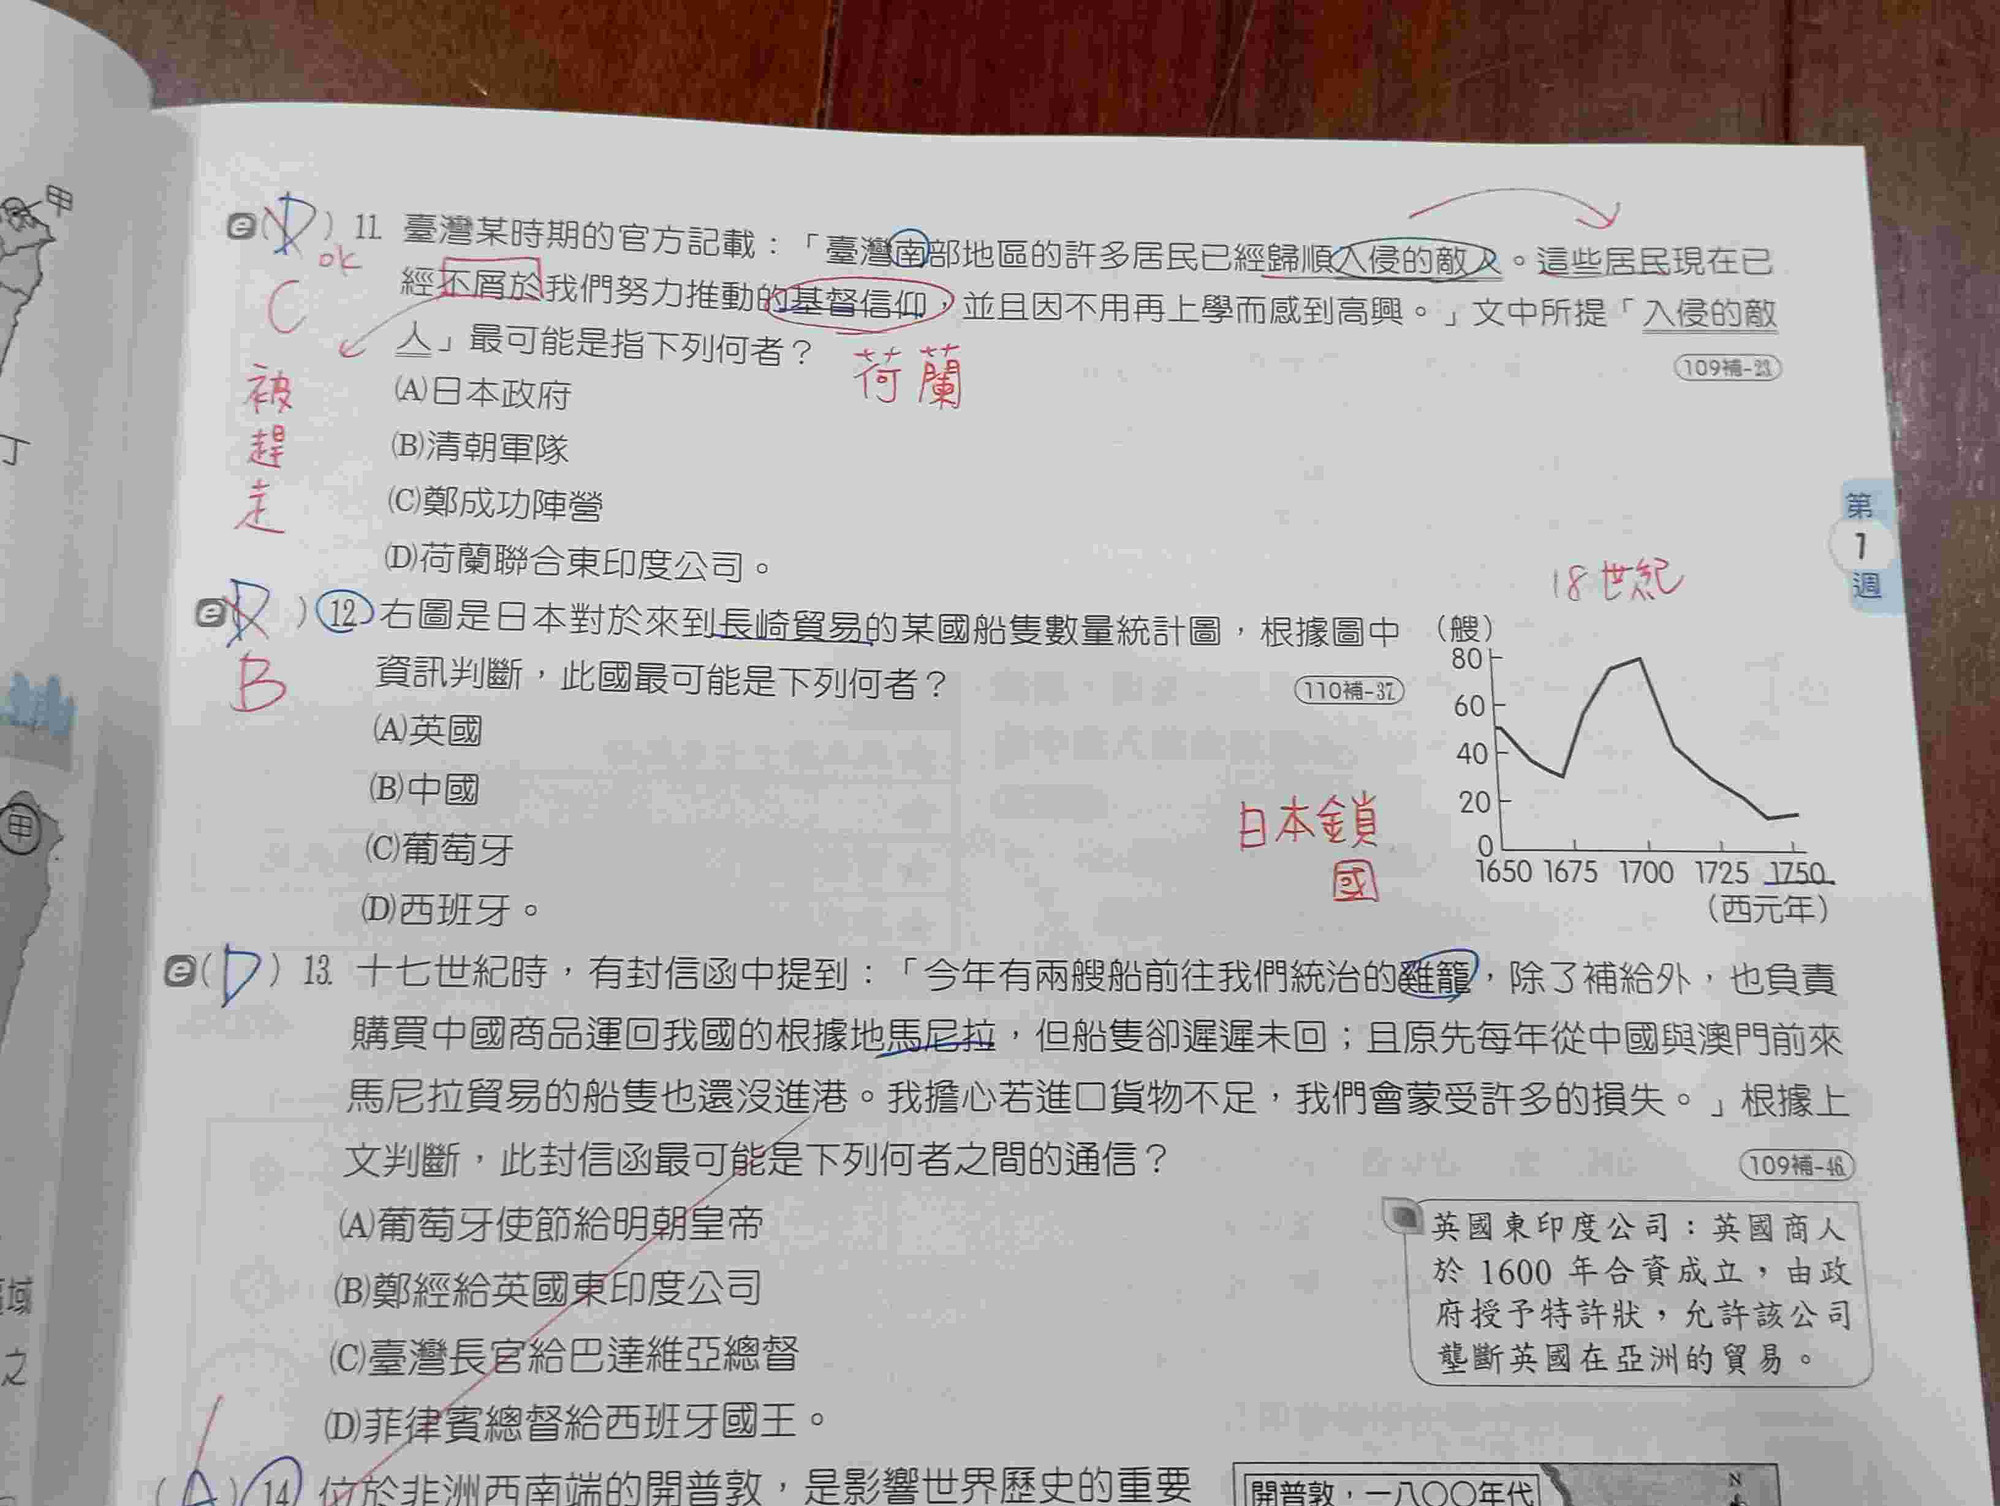 甲
丁
甲
域
之
e(D) 11. 臺灣某時期的官方記載：「臺灣南部地區的許多居民已經歸順入侵的敵人。這些居民現在已
經不屑於我們努力推動的基督信仰，並且因不用再上學而感到高興。」文中所提「入侵的敵
人」最可能是指下列何者？
109補-23
ok
C
被
趕
走
荷蘭
(A)日本政府
(B)清朝軍隊
(C)鄭成功陣營
(D)荷蘭聯合東印度公司。
第
1
週
e(D) 12. 右圖是日本對於來到長崎貿易的某國船隻數量統計圖，根據圖中
資訊判斷，此國最可能是下列何者？
110補-37
B
(A)英國
(B)中國
(C)葡萄牙
(D)西班牙。
18世紀
（艘）
80
60
40
20
0
1650 1675 1700 1725 1750
（西元年）
日本鎖
國
e(D) 13. 十七世紀時，有封信函中提到：「今年有兩艘船前往我們統治的雞籠，除了補給外，也負責
購買中國商品運回我國的根據地馬尼拉，但船隻卻遲遲未回；且原先每年從中國與澳門前來
馬尼拉貿易的船隻也還沒進港。我擔心若進口貨物不足，我們會蒙受許多的損失。」根據上
文判斷，此封信函最可能是下列何者之間的通信？
109補-46
(A)葡萄牙使節給明朝皇帝
(B)鄭經給英國東印度公司
(C)臺灣長官給巴達維亞總督
(D)菲律賓總督給西班牙國王。
英國東印度公司：英國商人
於 1600 年合資成立，由政
府授予特許狀，允許該公司
壟斷英國在亞洲的貿易。
(A) 14. 位於非洲西南端的開普敦，是影響世界歷史的重要
開普敦，一八〇〇年代
N